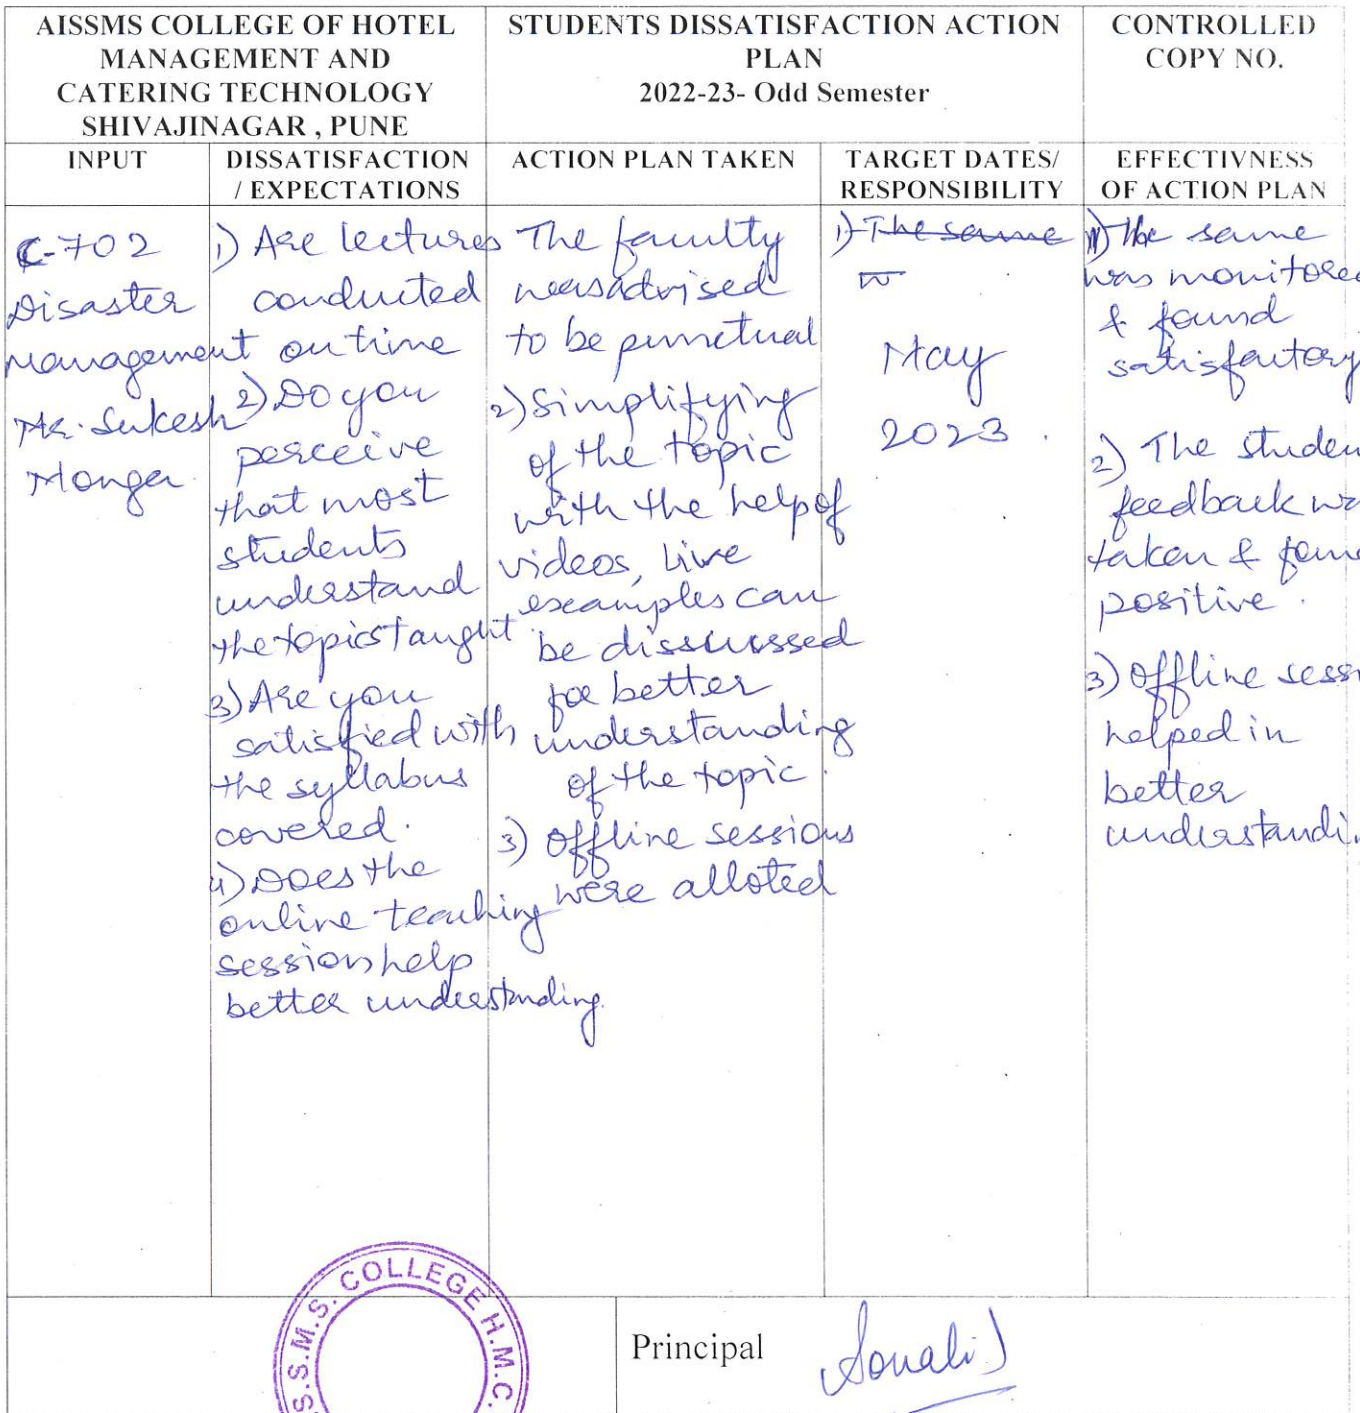 AISSMS COLLEGE OF HOTEL
MANAGEMENT AND
CATERING TECHNOLOGY
SHIVAJINAGAR , PUNE
STUDENTS DISSATISFACTION ACTION
PLAN
2022-23- Odd Semester
CONTROLLED
COPY NO.
INPUT
DISSATISFACTION
/ EXPECTATIONS
ACTION PLAN TAKEN
TARGET DATES/
RESPONSIBILITY
EFFECTIVNESS
OF ACTION PLAN
C-702
Disaster
Management
Mr. Sukesh
Monger
1) Are lectures
conducted
on time
2) Do you
perceive
that most
students
understand
the topics taught.
3) Are you
satisfied with
the syllabus
covered.
4) Does the
online teaching
session help
better understanding.
The faculty
was advised
to be punctual
2) Simplifying
of the topic
with the help of
videos, live
examples can
be disscussed
for better
understanding
of the topic.
3) Offline sessions
were alloted
1) The same
May
2023.
1) The same
was monitored
& found
satisfactory
2) The studen
feedback wa
taken & foun
positive.
3) Offline sessi
helped in
better
understandin
S.S.M.S. COLLEGE H.M.C.
Principal
Sonali J